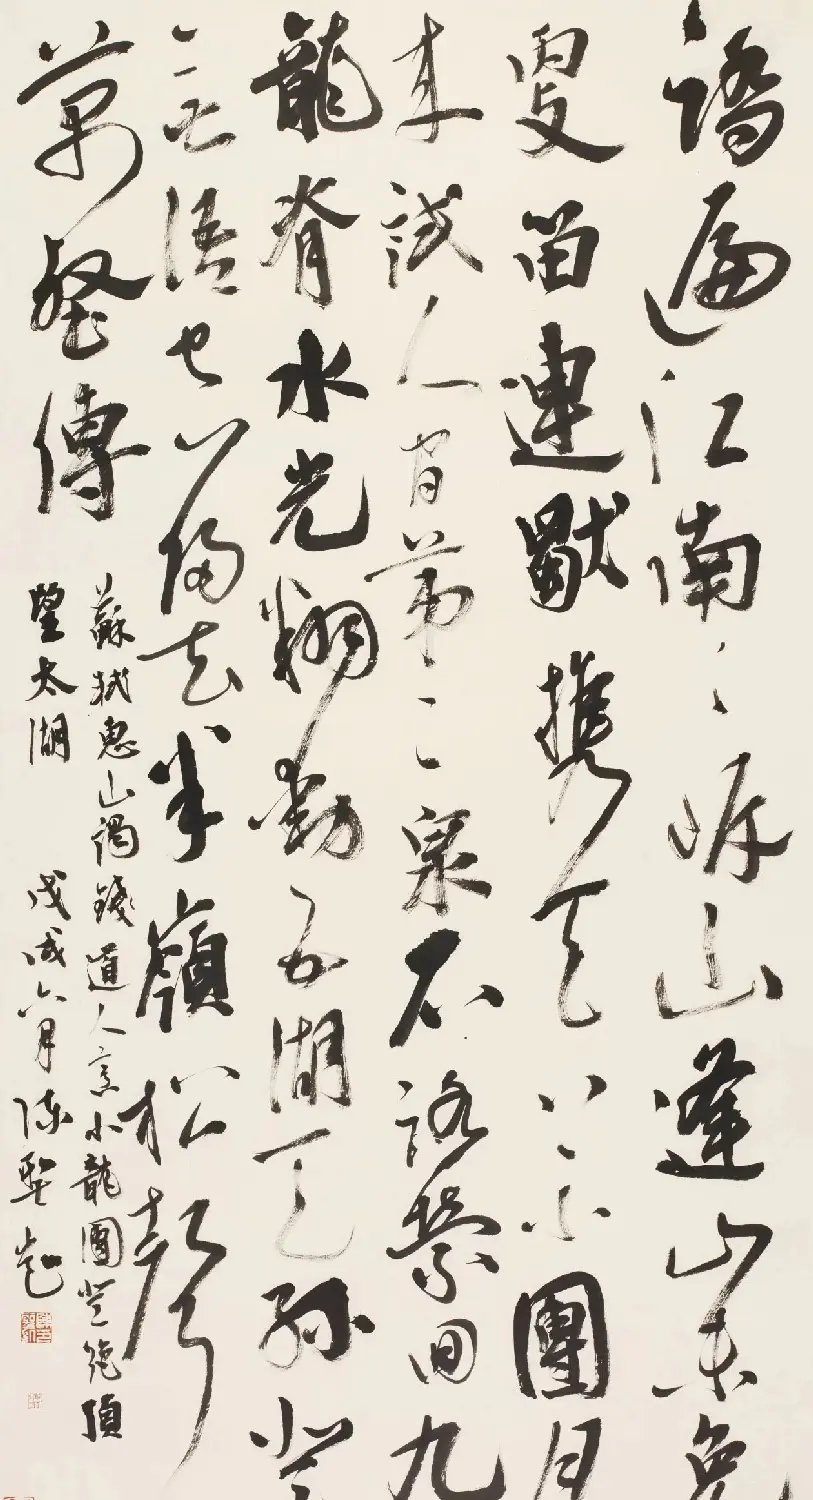 踏遍江南〻岸山逢山未免
更留連獨攜天上小團月
来試人間第二泉石路縈回九
龍脊水光翻動五湖天孫登
無語空歸去半嶺松聲
萬壑傳
蘇軾惠山謁錢道人烹小龍團登絕頂
望太湖 戊戌六月陳